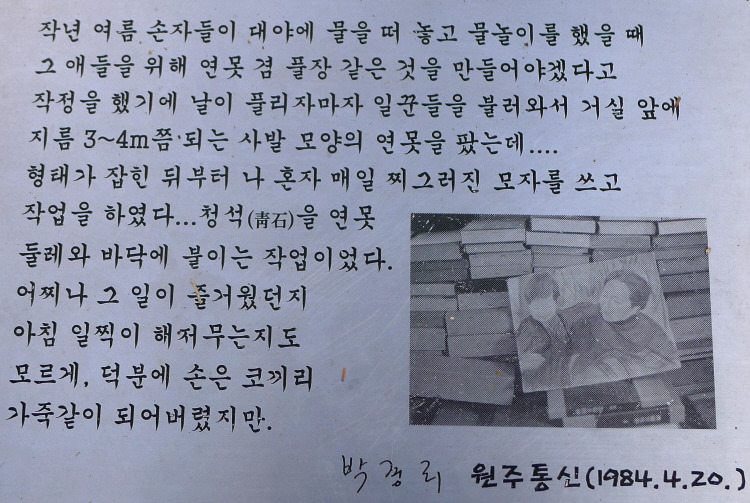 작년 여름 손자들이 대야에 물을 떠 놓고 물놀이를 했을 때
그 애들을 위해 연못 겸 풀장 같은 것을 만들어야겠다고
작정을 했기에 날이 풀리자마자 일꾼들을 불러와서 거실 앞에
지름 3~4m쯤 되는 사발 모양의 연못을 팠는데....
형태가 잡힌 뒤부터 나 혼자 매일 찌그러진 모자를 쓰고
작업을 하였다...청석(靑石)을 연못
둘레와 바닥에 붙이는 작업이었다.
어찌나 그 일이 즐거웠던지
아침 일찍이 해저무는지도
모르게, 덕분에 손은 코끼리
가죽같이 되어버렸지만.
박경리 원주통신(1984.4.20.)